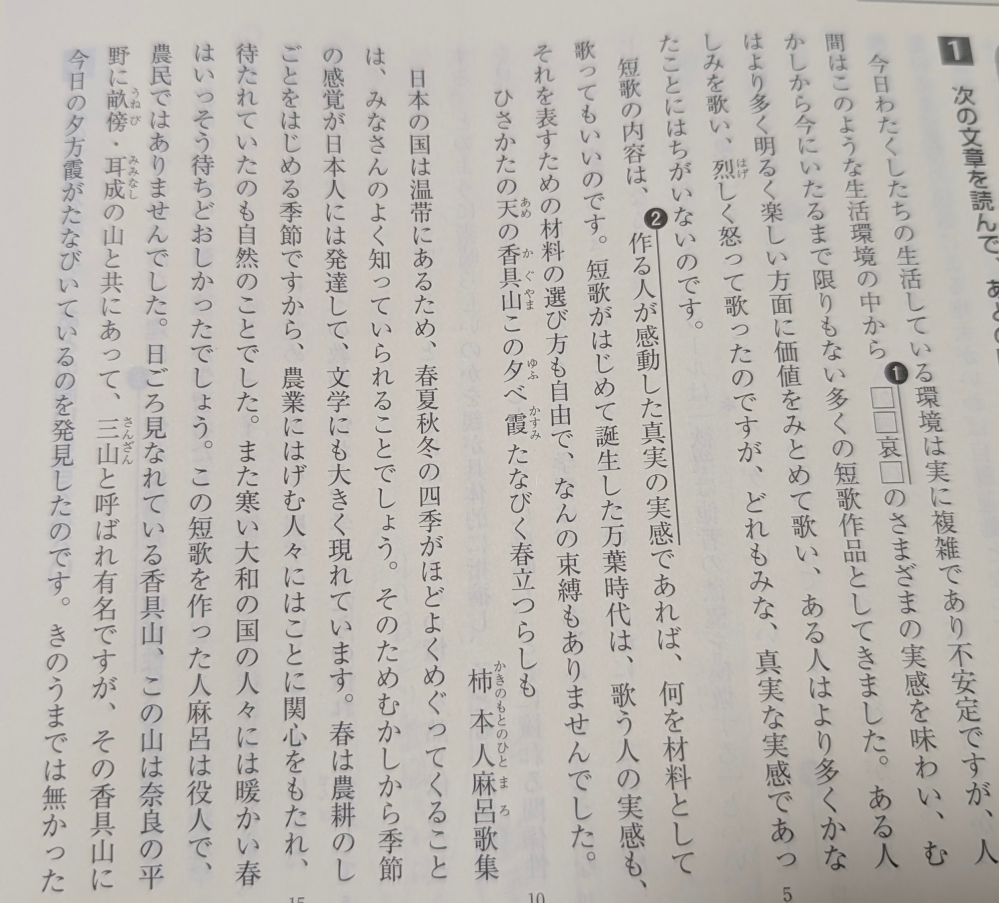 1 次の文章を読んで、あと
今日わたくしたちの生活している環境は実に複雑であり不安定ですが、人
間はこのような生活環境の中から❶□□哀□のさまざまの実感を味わい、む
かしから今にいたるまで限りもない多くの短歌作品としてきました。ある人
はより多く明るく楽しい方面に価値をみとめて歌い、ある人はより多くかな
しみを歌い、烈しく怒って歌ったのですが、どれもみな、真実な実感であっ
たことにはちがいないのです。
短歌の内容は、❷作る人が感動した真実の実感であれば、何を材料として
歌ってもいいのです。短歌がはじめて誕生した万葉時代は、歌う人の実感も、
それを表すための材料の選び方も自由で、なんの束縛もありませんでした。
ひさかたの天の香具山この夕べ霞たなびく春立つらしも
柿本人麻呂歌集
日本の国は温帯にあるため、春夏秋冬の四季がほどよくめぐってくること
は、みなさんのよく知っていられることでしょう。そのためむかしから季節
の感覚が日本人には発達して、文学にも大きく現れています。春は農耕のし
ごとをはじめる季節ですから、農業にはげむ人々にはことに関心をもたれ、
待たれていたのも自然のことでした。また寒い大和の国の人々には暖かい春
はいっそう待ちどおしかったでしょう。この短歌を作った人麻呂は役人で、
農民ではありませんでした。日ごろ見なれている香具山、この山は奈良の平
野に畝傍・耳成の山と共にあって、三山と呼ばれ有名ですが、その香具山に
今日の夕方霞がたなびいているのを発見したのです。きのうまでは無かった
はげ
あめ
かぐやま
ゆふ
かすみ
かきのもとのひとまろ
うねび
みみなし
さんざん
5
10
15